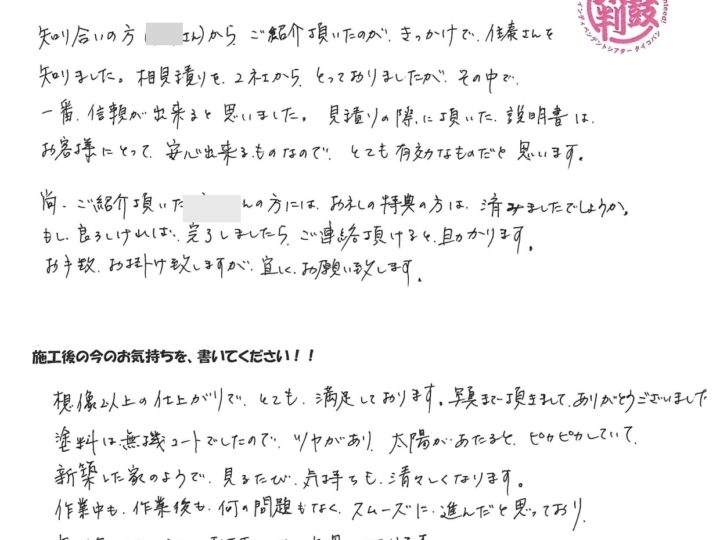 知り合いの方(さん)から、ご紹介頂いたのが、きっかけで、住泰さんを
知りました。相見積りを、2社から、とっておりましたが、その中で、
一番、信頼が出来ると思いました。見積りの際に頂いた、説明書は、
お客様にとって、安心出来るものなので、とても有効なものだと思います。
尚、ご紹介頂いた んの方には、お礼の特典の方は、済みましたでしょうか。
もし、良ろしければ、完了しましたら、ご連絡頂けると、助かります。
お手数、お掛け致しますが、宜しく、お願い致します。
施工後の今のお気持ちを、書いてください!!
想像以上の仕上がりで、とても、満足しております。写真まで頂きまして、ありがとうございました
塗料は無機コートでしたので、ツヤがあり、太陽があたると、ピカピカしていて、
新築した家のようで、見るたび、気持ちも、清々しくなります。
作業中も、作業後も、何の問題もなく、スムーズに、進んだと思っており、
鼓判
インディペンデントシアター タイコバン